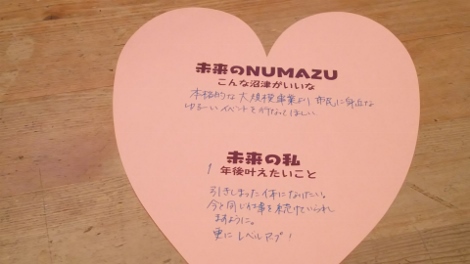 未来のNUMAZU
こんな沼津がいいな
本格的な大規模事業より市民に身近な
ゆるーいイベントをがなくほしい
未来の私
1年後叶えたいこと
引きしまった体になりたい。
今と同じ仕事を続けていられ
ますように。
更にレベルアップ!